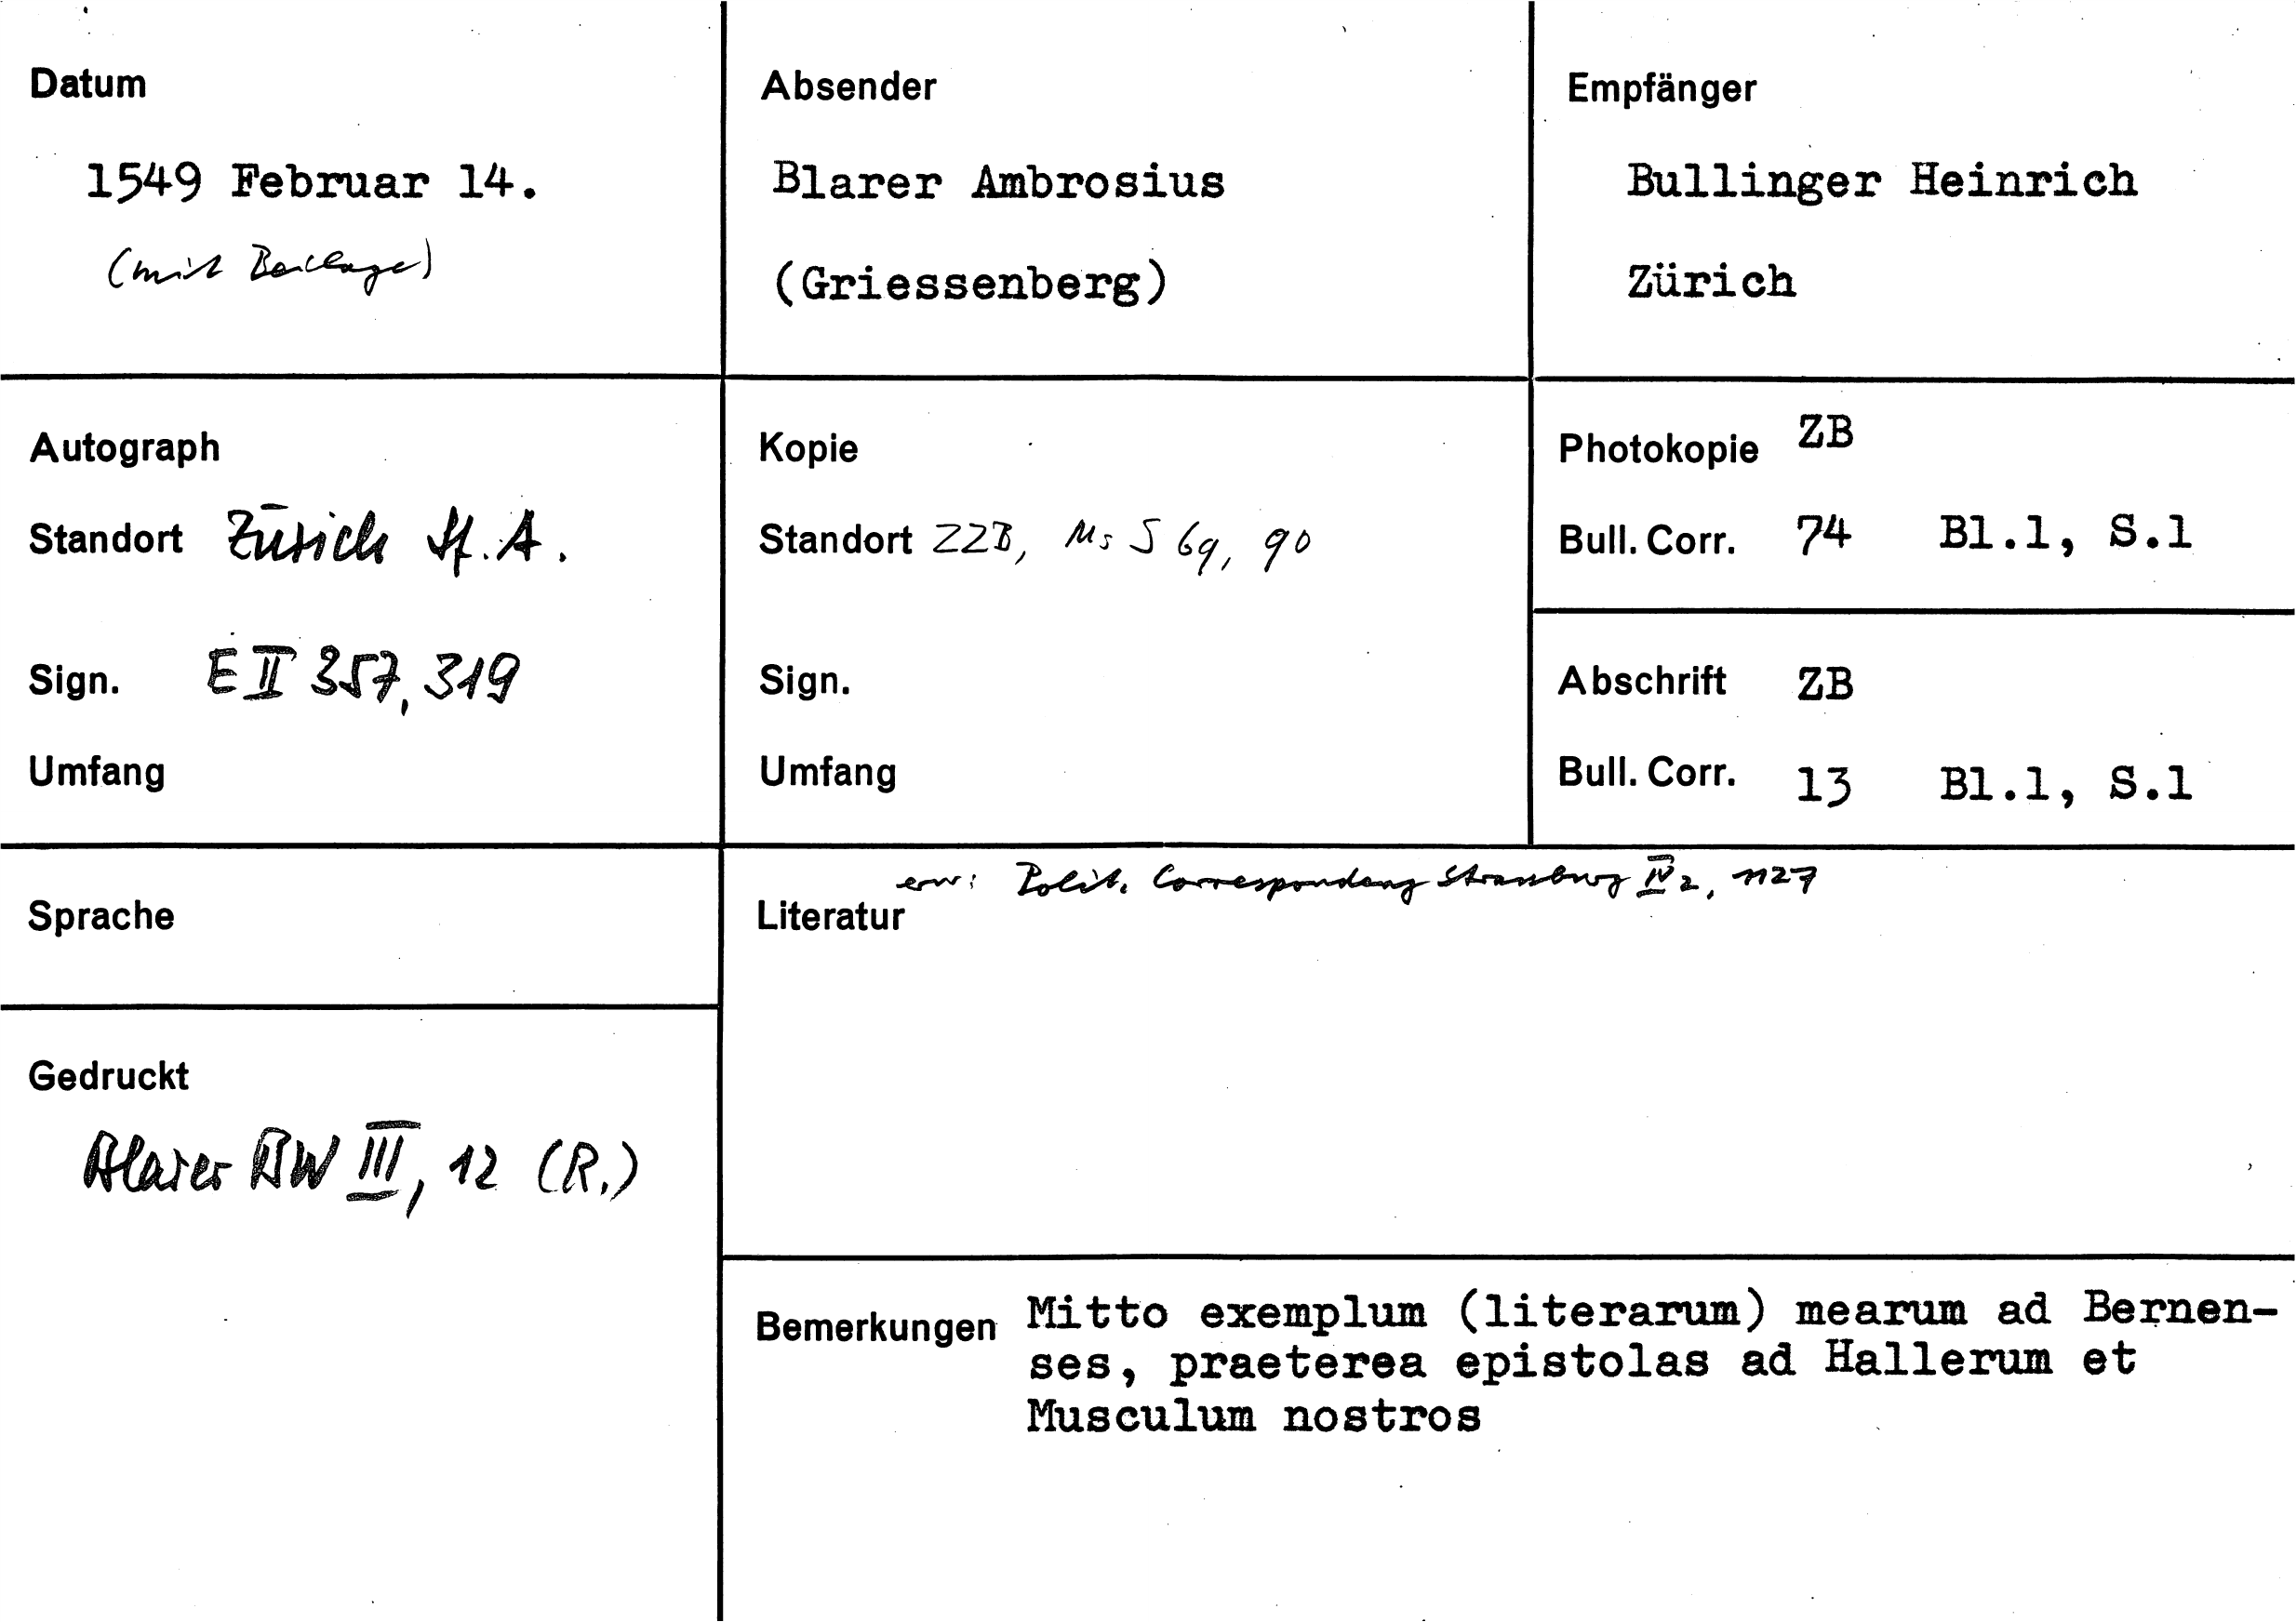 Datum
1549 Februar 14.
(mit Beilage)
Absender
Blarer Ambrosius
(Griessenberg)
Empfänger
Bullinger Heinrich
Zürich
Autograph
Standort Zürich St. A.
Sign. E II 357, 319
Umfang
Kopie
Standort ZZB, Ms S 69, 90
Sign.
Umfang
Photokopie ZB
Bull. Corr. 74 Bl.1, S.1
Abschrift ZB
Bull. Corr. 13 Bl.1, S.1
Sprache
Gedruckt
Blarer BW III, 12 (R.)
erw: Polit. Correspondenz Strassburg IV 2, 1127
Literatur
Bemerkungen Mitto exemplum (literarum) mearum ad Bernen-
ses, praeterea epistolas ad Hallerum et
Musculum nostros